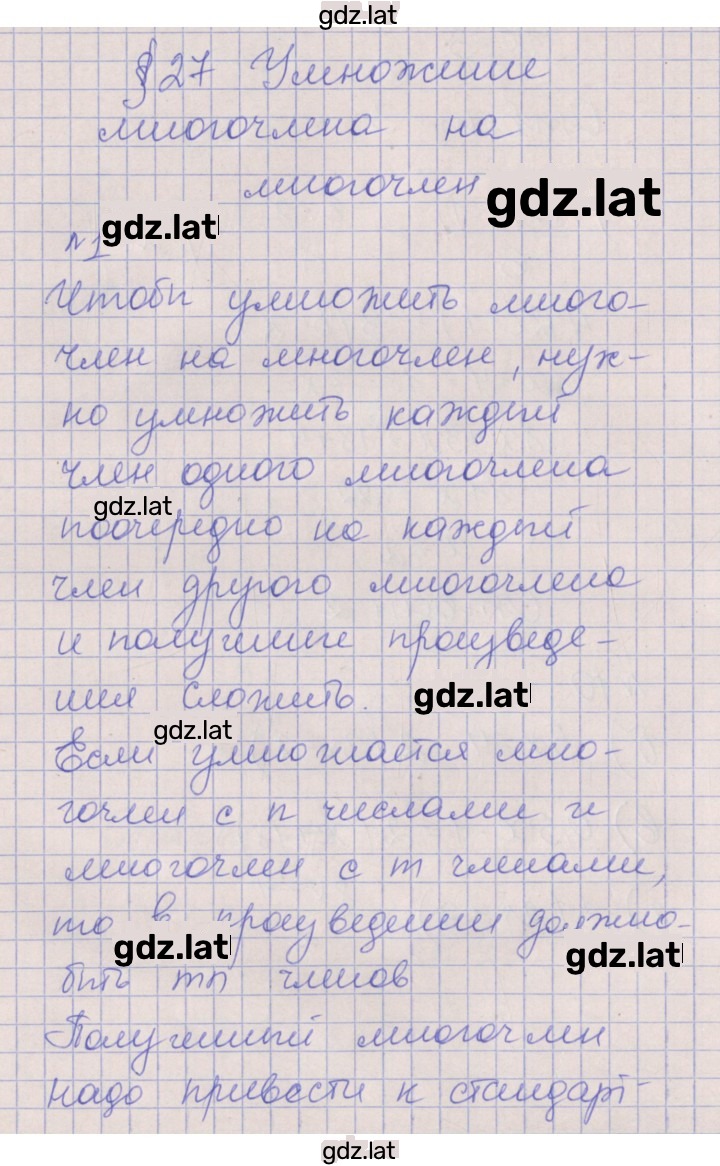 gdz.lat
§ 27 Умножение
многочлена на
многочлен gdz.lat
gdz.lat
№1
Чтобы умножить много-
член на многочлен, нуж-
но умножить каждый
член одного многочлена
gdz.lat
поочередно на каждый
член другого многочлена
и полученные произведе-
ния сложить. gdz.lat
gdz.lat
Если умножается мно-
гочлен с n числами и
многочлен с m членами,
то в произведении должно
gdz.lat gdz.lat
быть mn членов
Полученный многочлен
надо привести к стандарт-
gdz.lat